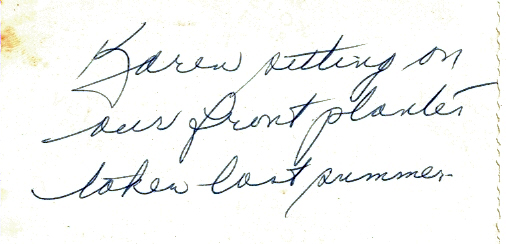 Karen sitting on
our front planter
taken last summer